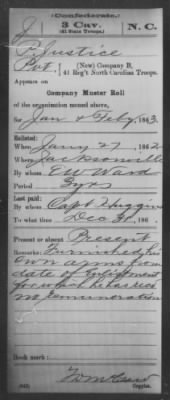 (Confederate.)
J 3 Cav. N. C.
(41 State Troops.)
P. Justice
Pvt., (New) Company B,
41 Reg't North Carolina Troops.
Appears on
Company Muster Roll
of the organization named above,
for Jan & Feby, 1863.
Enlisted:
When Jany 27, 1862.
Where Jacksonville
By whom E W Ward
Period 2 yrs
Last paid:
By whom Capt Huggins
To what time Dec 31, 186
Present or absent Present
Remarks: Furnished his
own arms from
date of enlistment
for which he has recd
no remuneration
Book mark:
(642) Copyist.